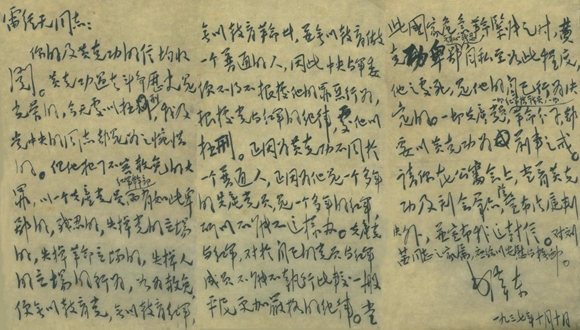 雷经天同志:
你的及黄克功的信均收
阅。黄克功过去斗争历史是
光荣的,今天处以极刑,我及
党中央的同志都是为之惋惜
的。但他犯了不容赦免的大
罪,以一个共产党员红军干部而有如此卑
鄙的,残忍的,失掉党的立场
的,失掉革命立场的,失掉人
的立场的行为,如为赦免,
便无以教育党,无以教育红军,
无以教育革命者,并无以教育做
一个普通的人,因此中央与军委
便不得不根据他的罪恶行为,
根据党与红军的纪律,处他以
极刑。正因为黄克功不同于
一个普通人,正因为他是一个多年
的共产党员,是一个多年的红军,
所以不能不这样办。共产党
与红军,对于自己的党员与红军
成员不能不执行比较一般
平民更加严格的纪律。当
此国家危急革命紧张之时,黄
克功卑鄙无耻残忍自私至如此程度,
他之处死,是他的自己行为决
定的。一切共产党员,一切红军指战员,一切革命分子,都
要以黄克功为前车之戒。
请你在公审会上,当着黄克
功及到会群众,除宣布法庭判
决外,并宣布我这封信。对刘
茜同志之家属,应给以安慰与抚恤。
毛泽东
一九三七年十月十日